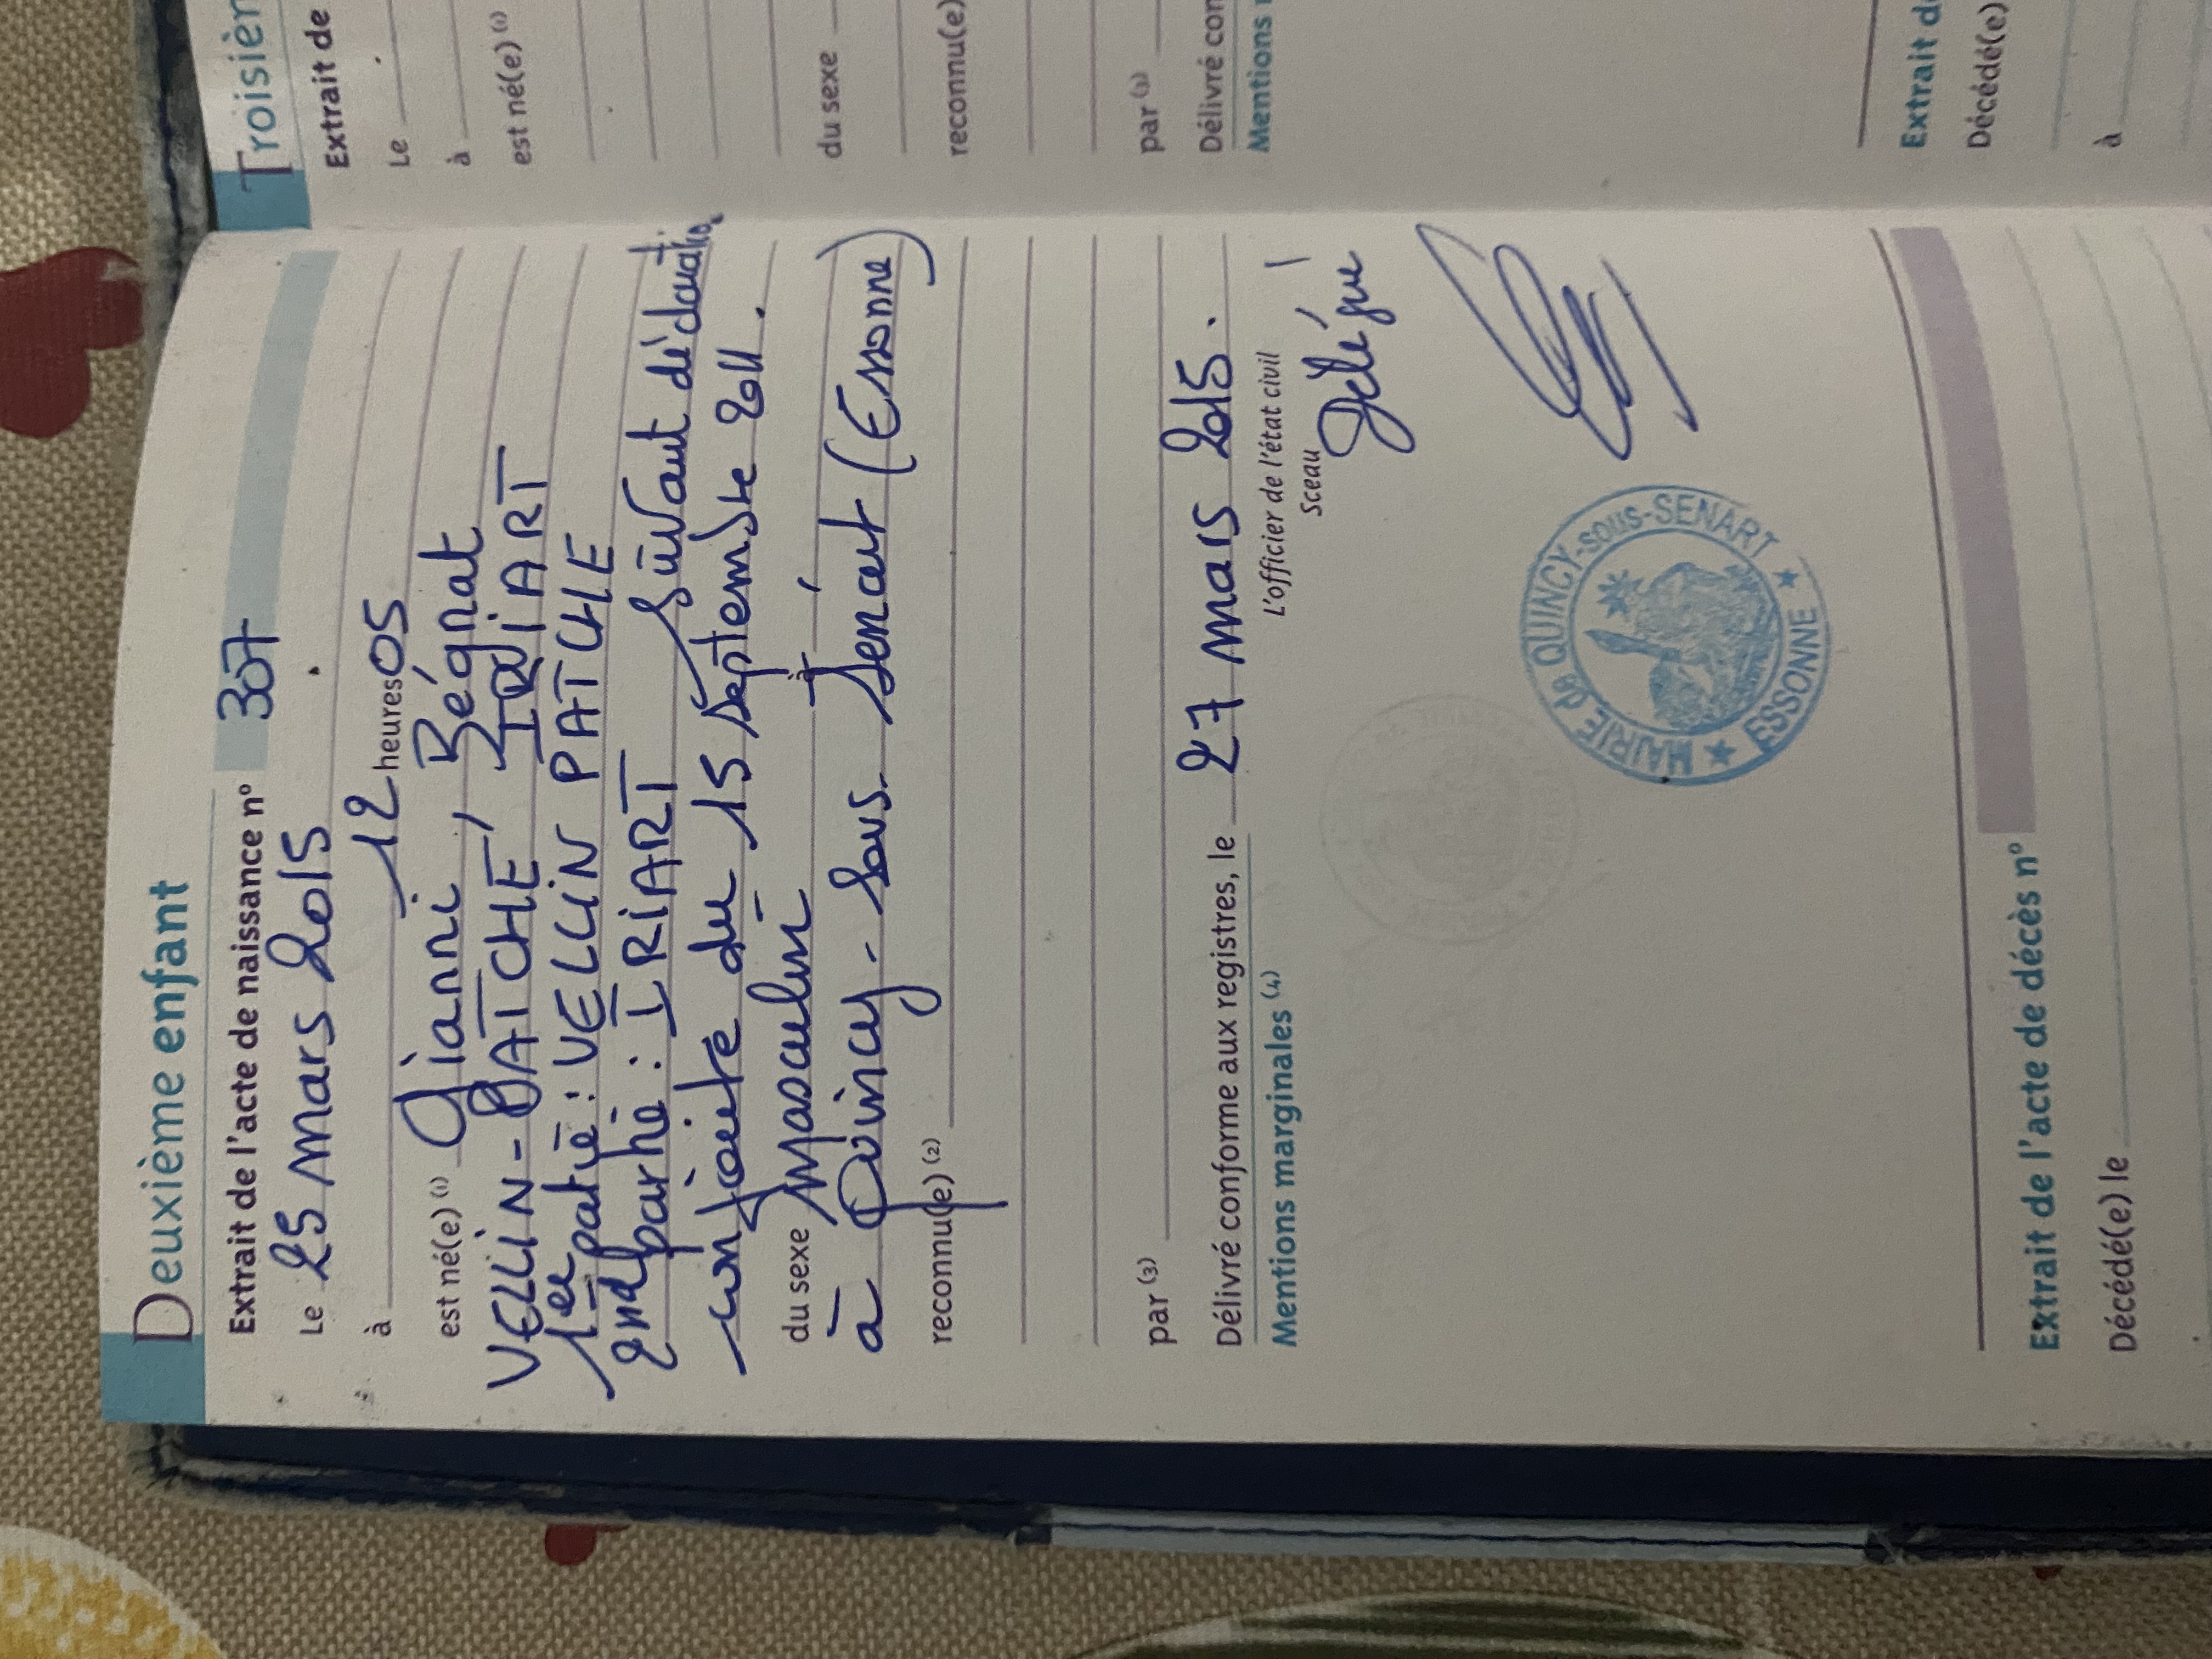 Deuxième enfant
Extrait de l'acte de naissance n° 307
Le 25 mars 2015
à 12 heures 05
est né(e) (1) Gianni, Régnat
VELLIN - PATCHE IRIART
1ère partie : VELLIN PATCHE
2nd partie : IRIART Suivant déclaration
conjointe du 15 septembre 2011.
du sexe masculin à
à Quincy-Sous-Sénart (Essonne)
reconnu(e) (2)
par (3)
Délivré conforme aux registres, le 27 mars 2015.
Mentions marginales (4)
L'officier de l'état civil
Sceau
Délégué
MAIRIE de QUINCY-SOUS-SENART
★ ESSONNE ★
Extrait de l'acte de décès n°
Décédé(e) le
Troisièm
Extrait de
Le
à
est né(e) (1)
du sexe
reconnu(e)
par (3)
Délivré con
Mentions
Extrait de
Décédé(e)
à